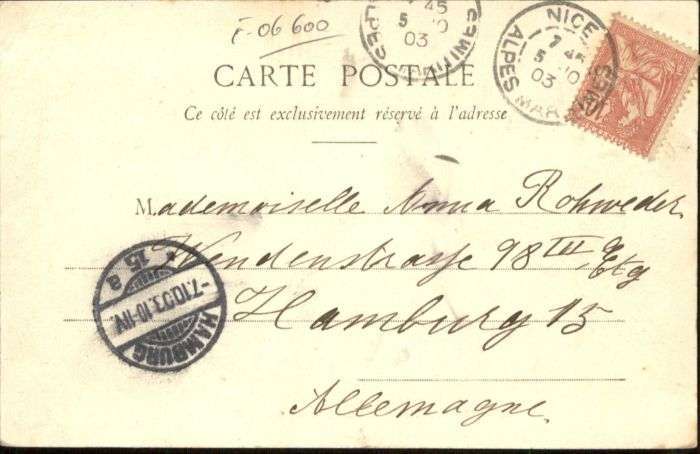 F-06 600
45
5 10
03
ALPES MARITIMES
NICE
7 45
5 10
03
ALPES MAR
CARTE POSTALE
Ce côté est exclusivement réservé à l'adresse
Mademoiselle Anna Rohweder
Wendenstrasse 98 III Etg
Hamburg 15
Allemagne.
HAMBURG
-7.10.03.10-11V.
15 a